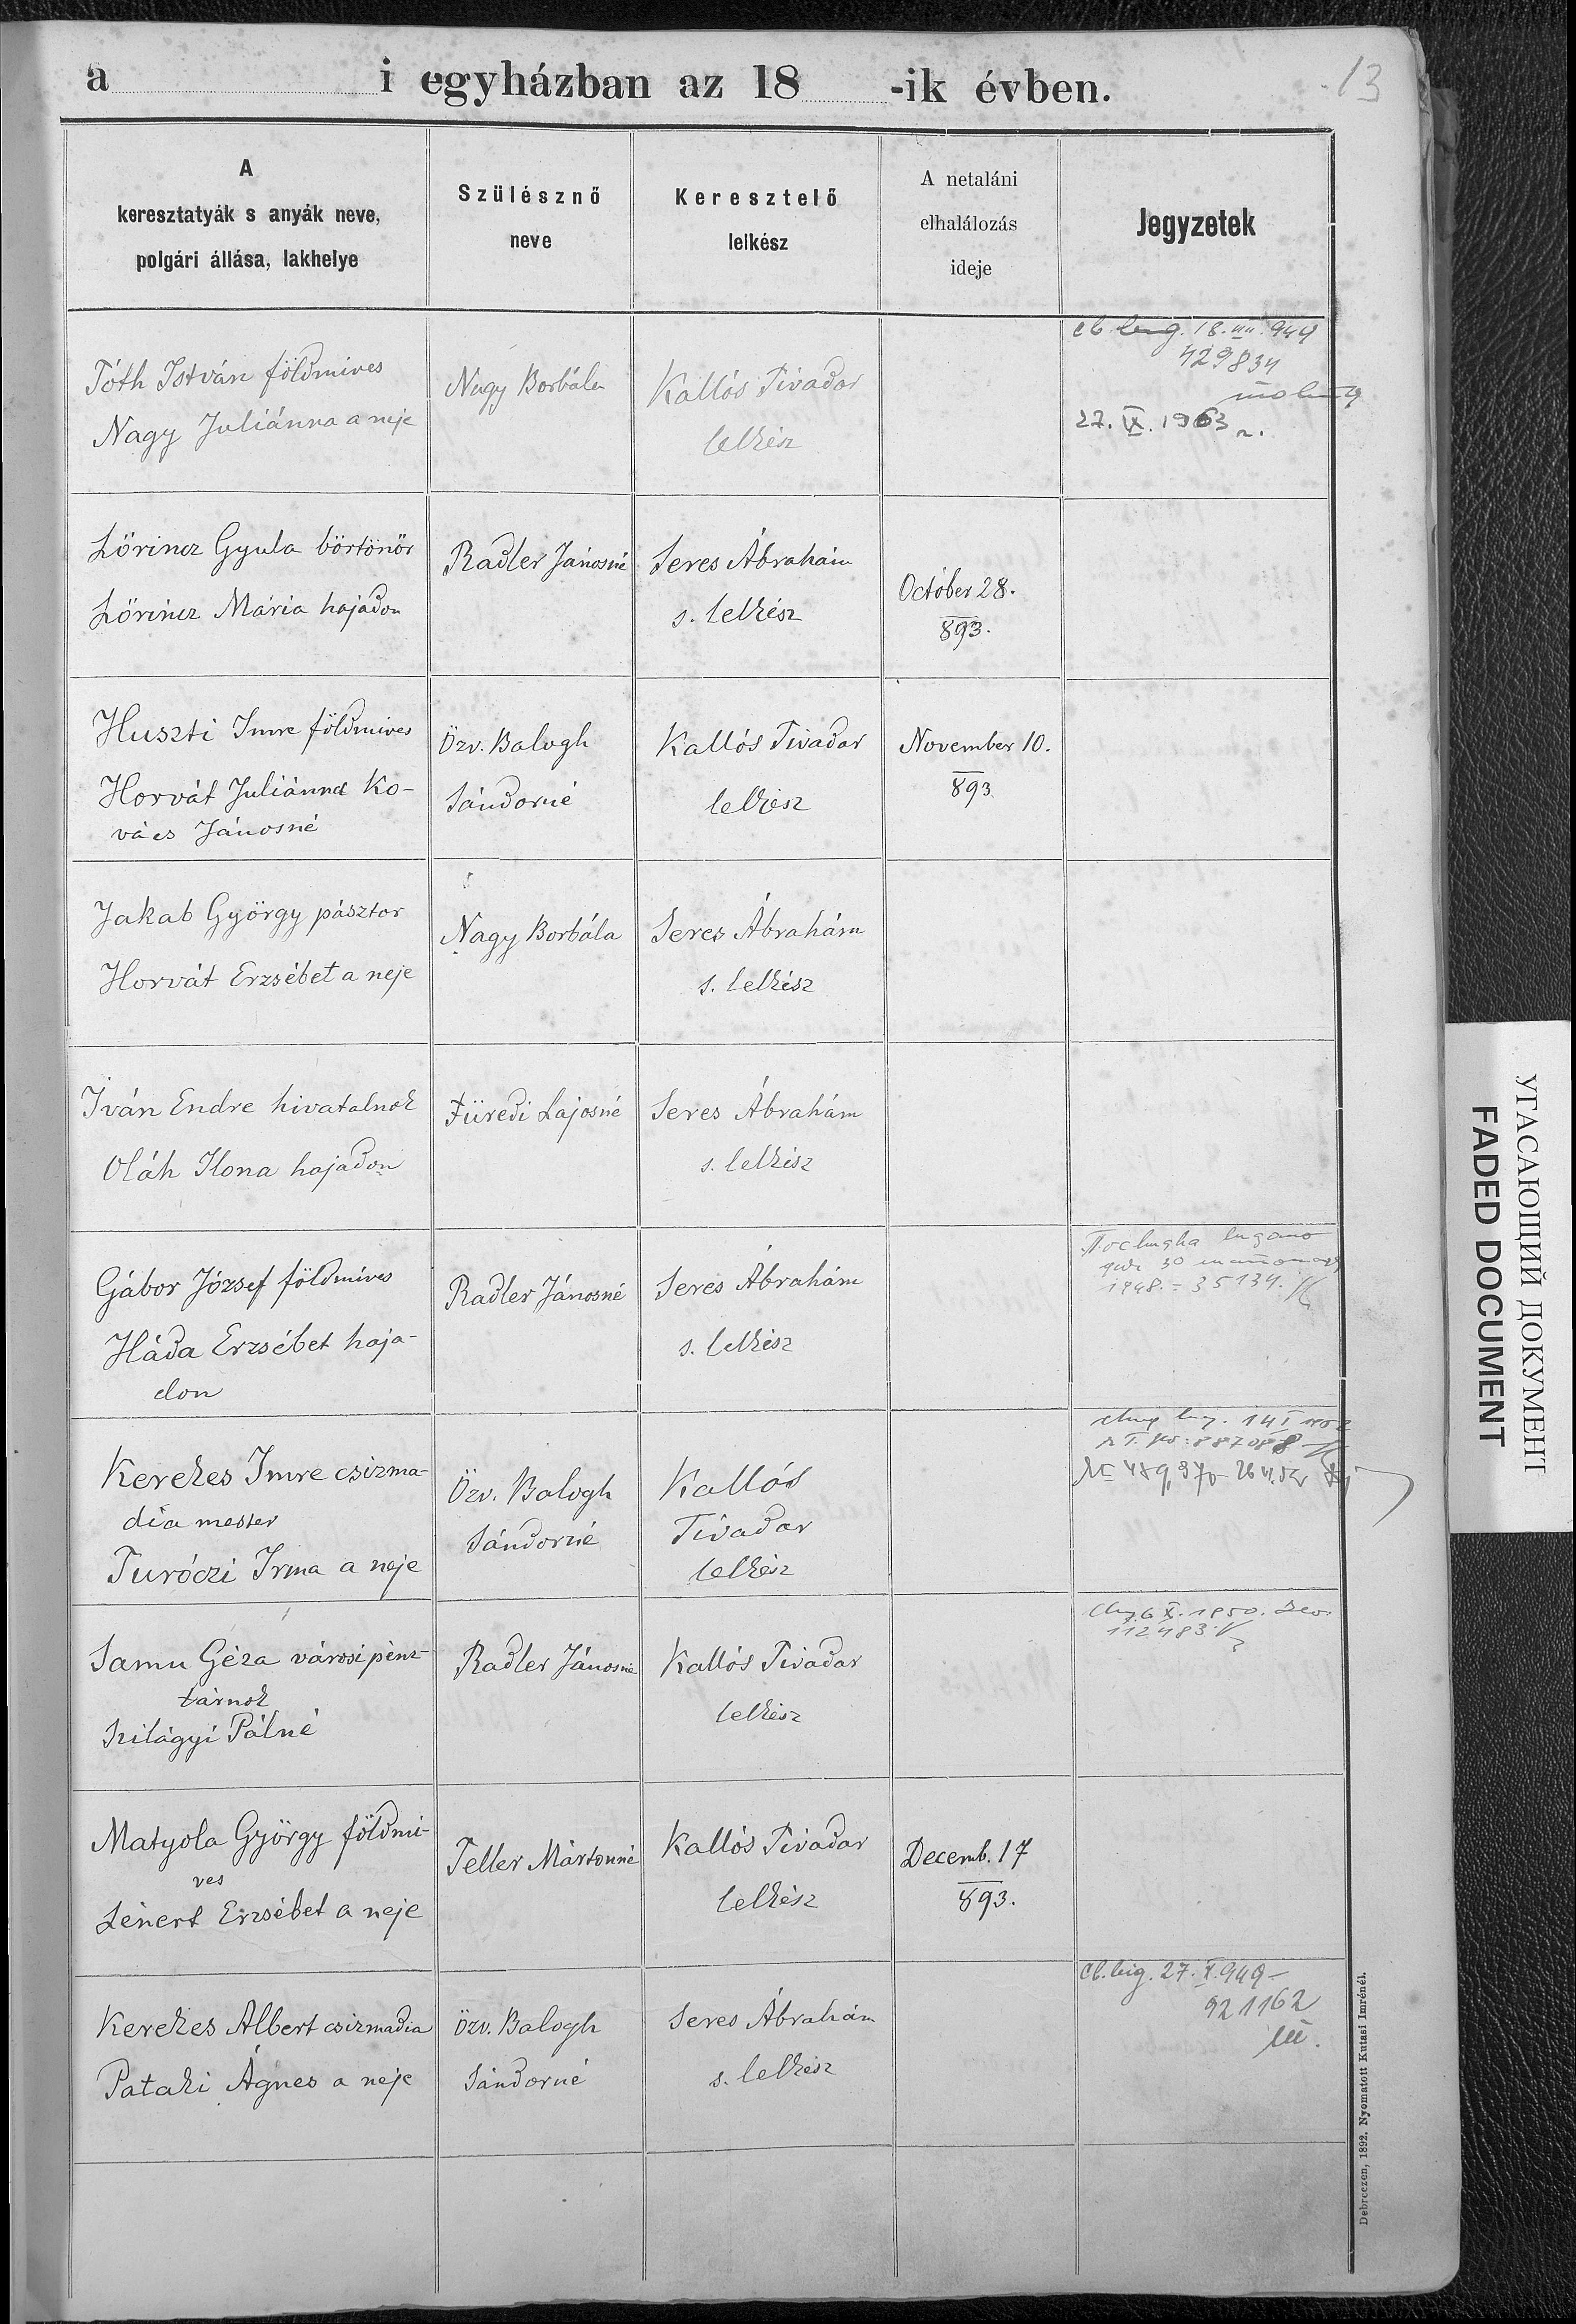 a i egyházban az 18 -ik évben.
13
A
keresztatyák s anyák neve,
polgári állása, lakhelye
Szülésznő
neve
Keresztelő
lelkész
A netaláni
elhalálozás
ideje
Jegyzetek
Tóth István földmives
Nagy Juliánna a neje
Nagy Borbála
Kallós Tivadar
lelkész
18. VII. 949
429834
27. IX. 1963
Lőrincz Gyula börtönőr
Lőrincz Mária hajadon
Radler Jánosné
Seres Ábrahám
s. lelkész
Október 28.
893.
Huszti Imre földmives
Horvát Juliánna Ko-
vács Jánosné
Özv. Balogh
Sándorné
Kallós Tivadar
lelkész
November 10.
893
Jakab György pásztor
Horvát Erzsébet a neje
Nagy Borbála
Seres Ábrahám
s. lelkész
Iván Endre hivatalnok
Oláh Ilona hajadon
Füredi Lajosné
Seres Ábrahám
s. lelkész
Gábor József földmives
Háda Erzsébet haja-
don
Radler Jánosné
Seres Ábrahám
s. lelkész
30
1948. = 35134.
Kerekes Imre csizma-
dia mester
Turóczi Irma a neje
Özv. Balogh
Sándorné
Kallós
Tivadar
lelkész
14 I
887088
Samu Géza városi pénz-
tárnok
Szilágyi Pálné
Radler Jánosné
Kallós Tivadar
lelkész
6 X. 1950.
112483.
Matyola György földmi-
ves
Lénert Erzsébet a neje
Teller Mártonné
Kallós Tivadar
lelkész
Decemb. 17
893.
Kerekes Albert csizmadia
Pataki Ágnes a neje
Özv. Balogh
Sándorné
Seres Ábrahám
s. lelkész
27. X. 949-
921162
Debreczen, 1892. Nyomatott Kutasi Imrénél.
УГАСАЮЩИЙ ДОКУМЕНТ
FADED DOCUMENT